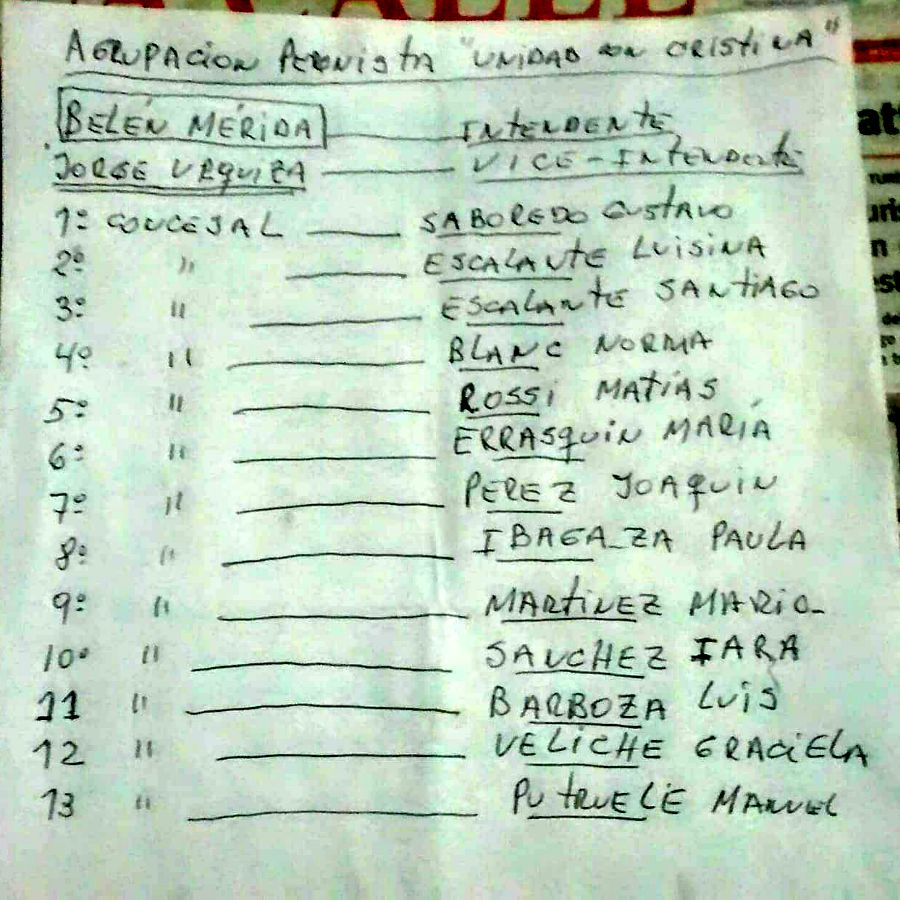 AGRUPACION PERONISTA "UNIDAD CON CRISTINA"
BELÉN MÉRIDA INTENDENTE
JORGE URQUIZA VICE-INTENDENTE
1º CONCEJAL SABOREDO GUSTAVO
2º " ESCALANTE LUISINA
3º " ESCALANTE SANTIAGO
4º " BLANC NORMA
5º " ROSSi MATÍAS
6º " ERRASQUIN MARÍA
7º " PEREZ JOAQUIN
8º " IBAGAZA PAULA
9º " MARTINEZ MARIO
10º " SANCHEZ IARA
11 " BARBOZA LUIS
12 " VELICHE GRACIELA
13 " PUTRUELE MANUEL